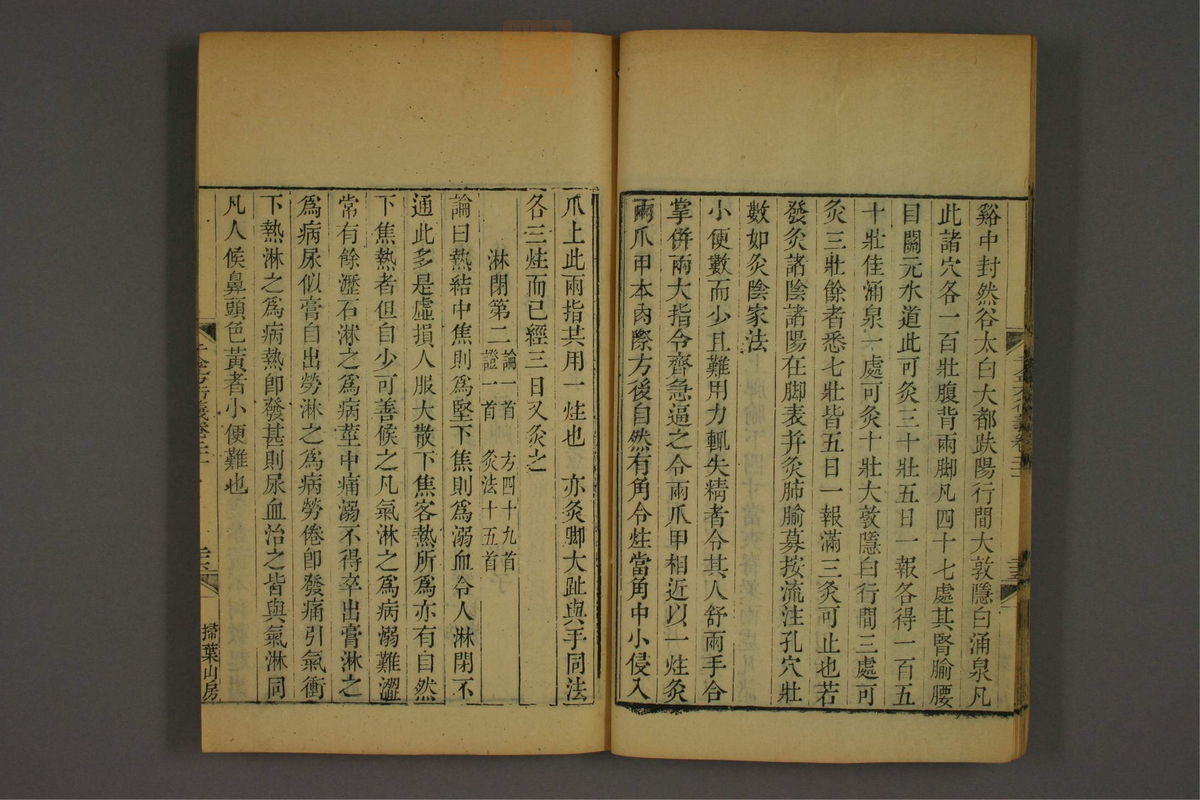 谿中封然谷太白大都趺陽行間大敦隱白涌泉凡
此諸穴各一百壯腹背兩脚凡四十七處其腎腧腰
目關元水道此可灸三十壯五日一報各得一百五
十壯佳涌泉一處可灸十壯大敦隱白行間三處可
灸三壯餘者悉七壯皆五日一報滿三灸可止也若
發灸諸陰諸陽在脚表幷灸肺腧募按流注孔穴壯
數如灸陰家法
小便數而少且難用力輒失精者令其人舒兩手合
掌併兩大指令齊急逼之令兩爪甲相近以一炷灸
兩爪甲本肉際方後自然有角令炷當角中小侵入
爪上此兩指共用一炷也 亦灸脚大趾與手同法
各三炷而已經三日又灸之
淋閉第二 論一首 方四十九首 證一首 灸法十五首
論曰熱結中焦則爲堅下焦則爲溺血令人淋閉不
通此多是虛損人服大散下焦客熱所爲亦有自然
下焦熱者但自少可善候之凡氣淋之爲病溺難澀
常有餘瀝石淋之爲病莖中痛溺不得卒出膏淋之
爲病尿似膏自出勞淋之爲病勞倦卽發痛引氣衝
下熱淋之爲病熱卽發甚則尿血治之皆與氣淋同
凡人候鼻頭色黃者小便難也
掃葉山房